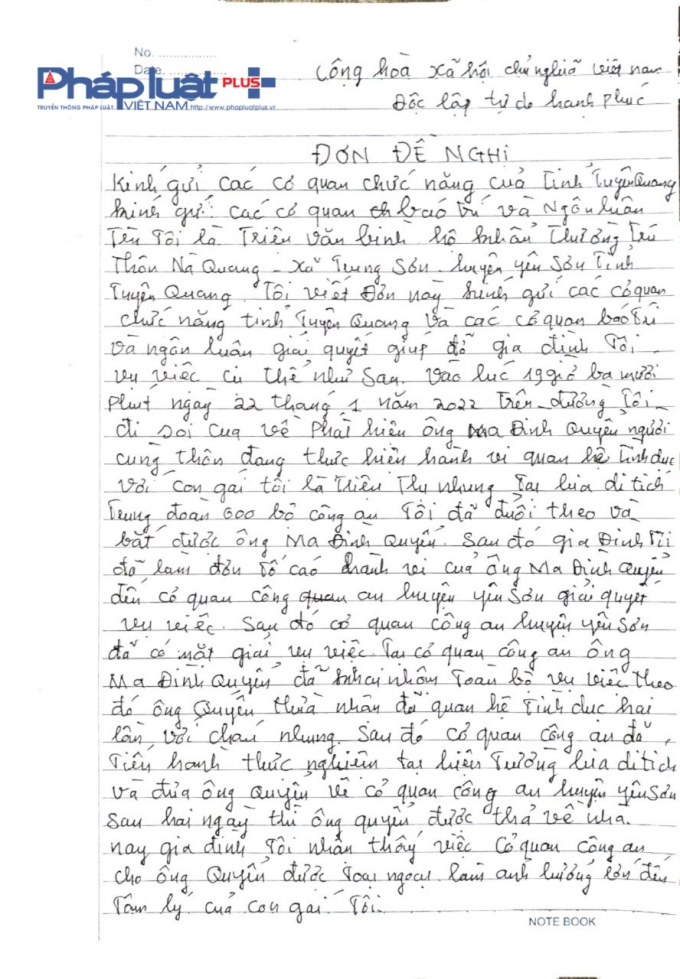 No. ................
Date. ................
Pháp luật PLUS+
TRUYỀN THÔNG PHÁP LUẬT VIỆT NAM http://www.phapluatplus.vn
Cộng hoà xã hội chủ nghĩa việt nam
Độc lập tự do hanh phúc
ĐƠN ĐỀ NGHỊ
Kinh gửi các cơ quan chức năng của Tỉnh Tuyên Quang
kinh gửi: các cơ quan báo trí và Ngôn luân
Tên Tôi là Triệu văn bình hộ khẩu Thường Trú
Thôn Nà Quang - xã Trung Sơn - huyện yên Sơn Tỉnh
Tuyên Quang. Tôi viết Đơn này kính gửi các cơ quan
chức năng tỉnh Tuyên Quang và các cơ quan báo trí
và ngôn luân giải quyết giúp đỡ gia đình Tôi
vụ việc cụ thể như sau. vào lúc 19 giờ ba mươi
Phút ngày 22 tháng 1 năm 2022 trên đường Tôi
đi soi cua về Phát hiện ông Ma Đình Quyền người
cùng thôn đang thực hiện hành vi quan hệ tình dục
với con gái tôi là Triệu Thị nhung Tại lùa di tích
Trung đoàn 600 bộ công an Tôi đã đuổi theo và
bắt được ông Ma Đình Quyền. Sau đó gia Đình Tôi
đã làm đơn Tố cáo hành vi của ông Ma Đình Quyền
đến cơ quan công an huyện yên Sơn giải quyết
vụ việc. Sau đó cơ quan công an huyện yên Sơn
đã có mặt giải vụ việc Tại cơ quan công an ông
Ma Đình Quyền đã khai nhân Toàn bộ vụ việc theo
đó ông Quyền thừa nhân đã quan hệ Tình dục hai
lần với cháu nhung. Sau đó cơ quan công an đã
Tiến hành thực nghiệm tại hiện Trường lùa di tích
và đưa ông Quyền về cơ quan công an huyện yên Sơn
Sau hai ngày thì ông quyền được thả về nha.
nay gia đình Tôi nhân thấy việc cơ quan công an
cho ông Quyền được Toại ngoại làm anh hưởng lớn đến
Tâm lý của con gái Tôi.
NOTE BOOK